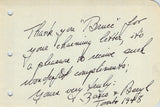 Thank you "Bruce" for
your charming letter, it's
a pleasure to receive such
wonderful compliments.
Yours very truly.
& Beryl
Toronto 1948